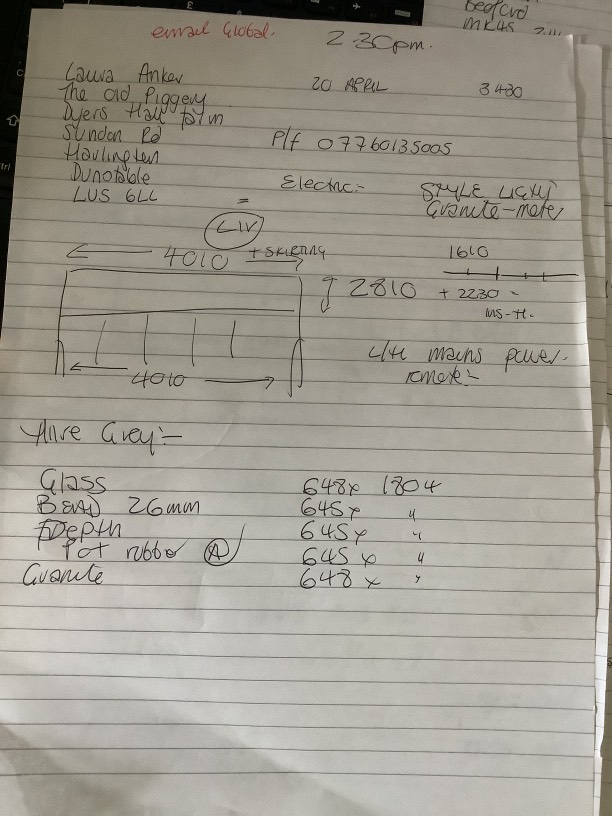 Bedford
MK45
email Global.
2.30pm.
Laura Anker
20 APRIL
3430
The Old Piggery
Dyers Hall Farm
Sundon Rd
P/f 07760135005
Harlington
Dunstable
Electric:-
STYLE LIGHT
LU5 6LL
Granite-mate
=
LIV
4010 + SKIRTING
1610
2810
+ 2230 -
L/H mains power.
4010
Grey:-
Glass 648x 1804
Bead 26mm 645x "
Depth 645x "
rubber A 645x "
Granite 648x "